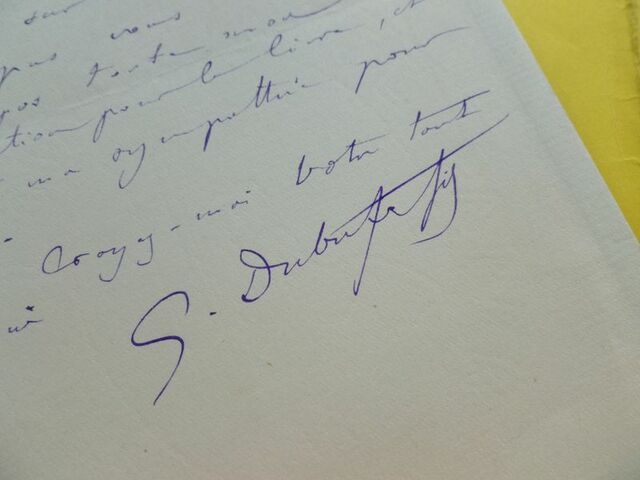 sur
pas vous
pos toute mon
tion pour le livre, et
ma sympathie pour
Croyez-moi votre tout
G. Dubufe fils